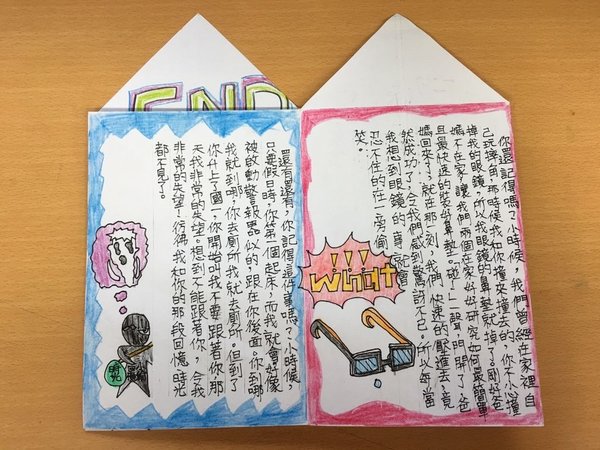 END
你還記得嗎？小時候，我們曾經在家裡自
己玩摔角，那時候我和你撞來撞去的，你不小心撞
掉我的眼鏡，所以我眼鏡的鼻墊就掉了。剛好爸
媽不在家，讓我們兩個在家研究如何最簡單
且最快速的裝好鼻墊。「碰」一聲，門開了，爸
媽回來了，就在那一刻，我們快速的壓進去，竟
然成功了，令我們感到驚訝不已，所以每當
我想到眼鏡的事，就會
忍不住的在一旁偷
笑。
!!!
what
還有還有，你記得這件事嗎？小時候，
只要假日時，你第一個起床，而我就會好像
被啟動警報器似的，跟在你後面。你到哪
我就到哪，你去廁所我就去廁所。但到了
你升上了國一，你開始叫我不要跟著你，那
天我非常的失望。想到不能跟著你，令我
非常的失望！彷彿我和你的那段回憶、時光
都不見了。
時光